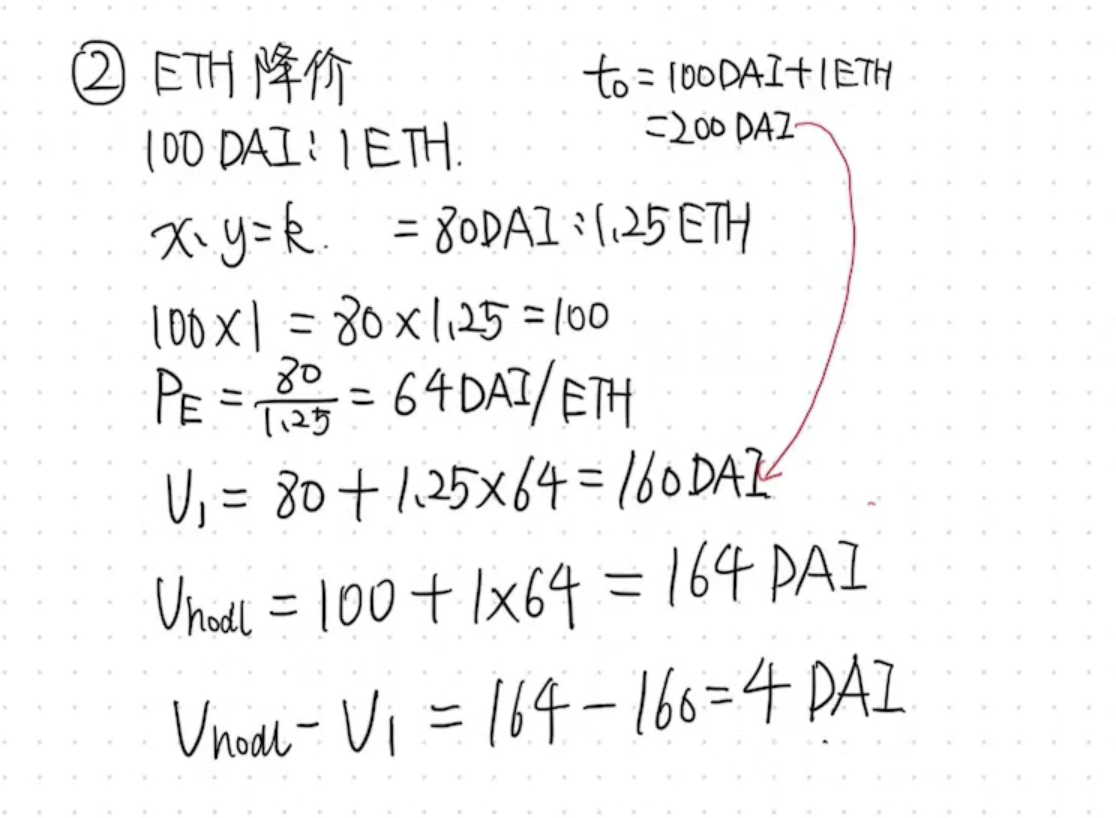 ② ETH 降价
t₀ = 100DAI+1ETH
=200 DAI
100 DAI : 1 ETH.
x、y=k. = 80DAI : 1.25 ETH
100×1 = 80×1.25 =100
P_E = 80/1.25 = 64DAI/ETH
U₁ = 80 + 1.25×64 = 160DAI
U_hodl = 100 + 1×64 = 164 DAI
U_hodl - U₁ = 164 - 160 = 4 DAI